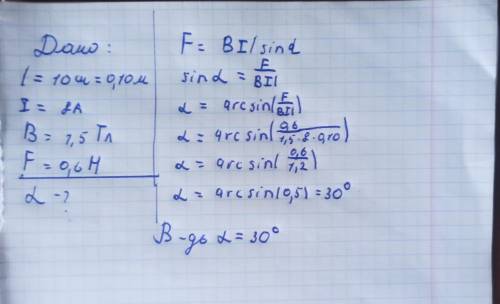 Дано:
l = 10см = 0,10м
I = 8А
B = 1,5 Тл
F = 0,6 Н
α - ?
F = BIl sinα
sinα = F/BIl
α = arcsin(F/BIl)
α = arcsin(0,6/1,5·8·0,10)
α = arcsin(0,6/1,2)
α = arcsin(0,5) = 30°
В-дь α = 30°